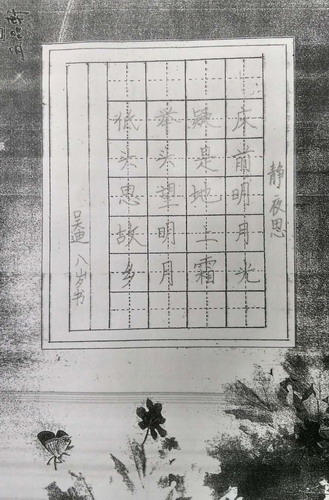 静夜思
床前明月光
疑是地上霜
举头望明月
低头思故乡
八岁书